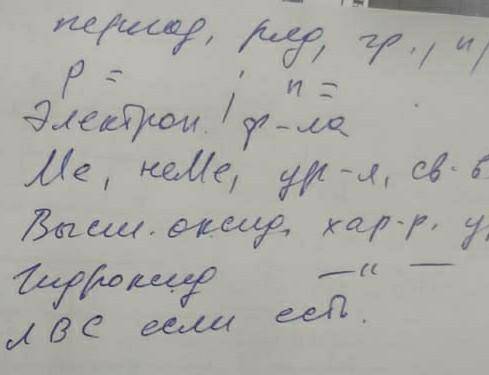 период, ряд, гр., п/
p = ; n =
Электрон. ф-ла
Ме, неМе, ур-я, св-в
Высш. оксид, хар-р. у
Гидроксид —"—
ЛВС если есть.